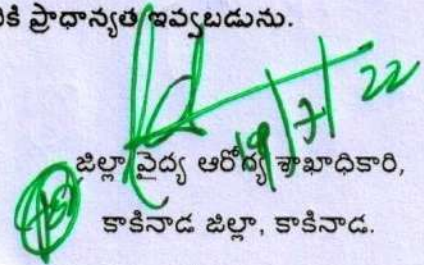 ప్రాధాన్యత ఇవ్వబడును.
19/7/22
జిల్లా వైద్య ఆరోగ్య శాఖాధికారి,
కాకినాడ జిల్లా, కాకినాడ.